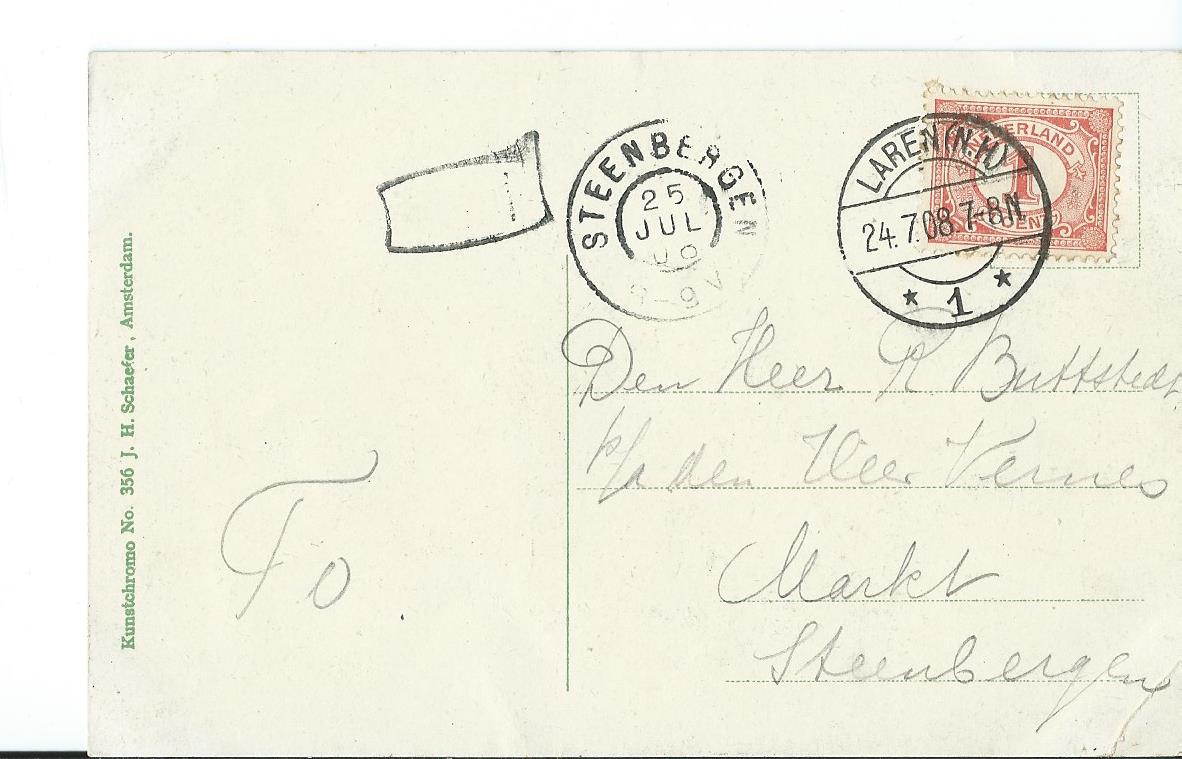 Kunstchromo No. 356 J. H. Schaefer, Amsterdam.
STEENBERGEN
25
JUL
08
8-9V
NEDERLAND
1
CENT
LAREN (N.H.)
24.7.08.7-8N
* 1 *
Den Heer R Buttstedt
p/a den Heer Vernes
Markt
Steenbergen
To.